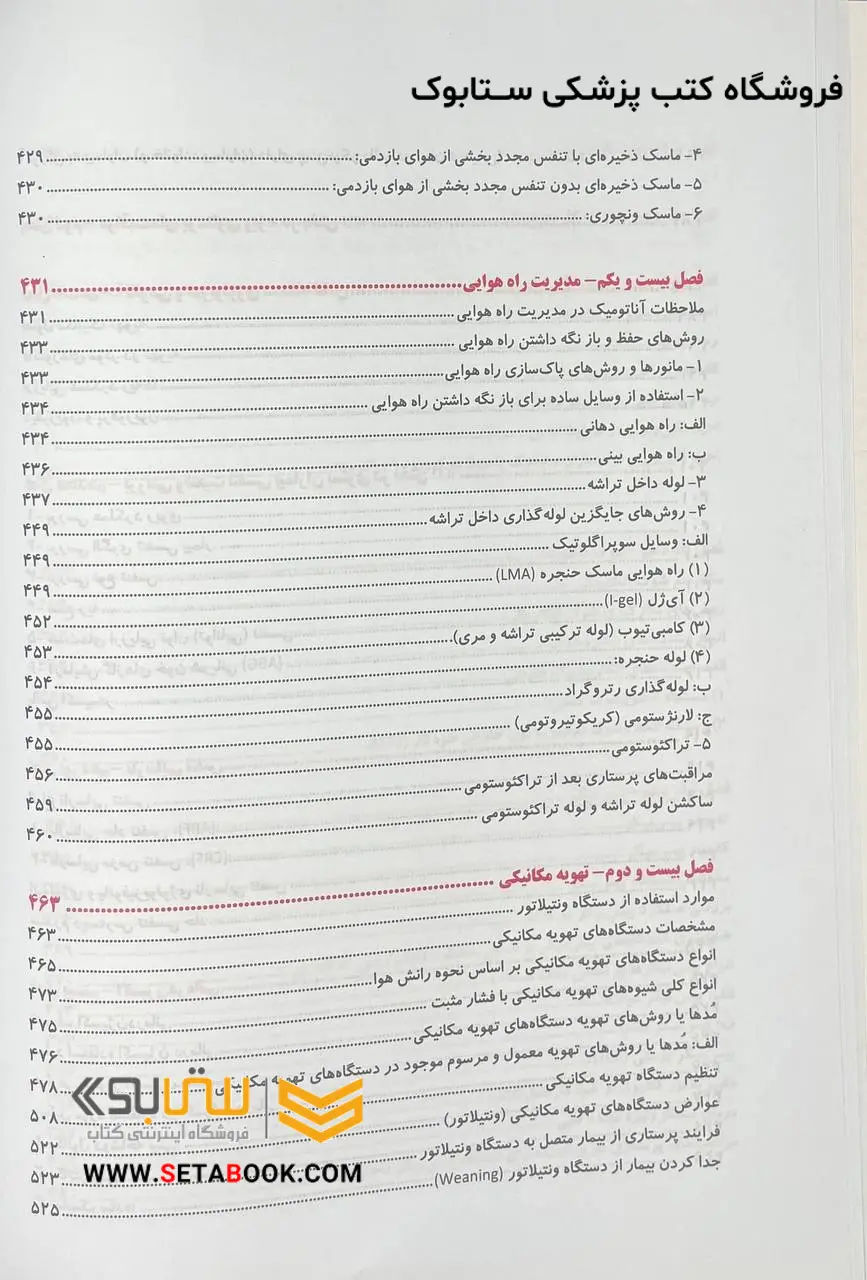 فروشگاه کتب پزشکی ستابوک
۴- ماسک ذخیره‌ای با تنفس مجدد بخشی از هوای بازدمی: ۴۲۹
۵- ماسک ذخیره‌ای بدون تنفس مجدد بخشی از هوای بازدمی: ۴۳۰
۶- ماسک ونچوری: ۴۳۰
فصل بیست و یکم- مدیریت راه هوایی ۴۳۱
ملاحظات آناتومیک در مدیریت راه هوایی ۴۳۱
روش‌های حفظ و باز نگه داشتن راه هوایی ۴۳۳
۱- مانورها و روش‌های پاک‌سازی راه هوایی ۴۳۳
۲- استفاده از وسایل ساده برای باز نگه داشتن راه هوایی ۴۳۴
الف: راه هوایی دهانی ۴۳۴
ب: راه هوایی بینی ۴۳۶
۳- لوله داخل تراشه ۴۳۷
۴- روش‌های جایگزین لوله‌گذاری داخل تراشه ۴۴۹
الف: وسایل سوپراگلوتیک ۴۴۹
(۱) راه هوایی ماسک حنجره (LMA) ۴۴۹
(۲) آی‌ژل (I-gel) ۴۵۲
(۳) کامبی‌تیوب (لوله ترکیبی تراشه و مری) ۴۵۳
(۴) لوله حنجره: ۴۵۴
ب: لوله‌گذاری رتروگراد ۴۵۵
ج: لارنژستومی (کریکوتیروتومی) ۴۵۵
۵- تراکئوستومی ۴۵۶
مراقبت‌های پرستاری بعد از تراکئوستومی ۴۵۹
ساکشن لوله تراشه و لوله تراکئوستومی ۴۶۰
فصل بیست و دوم- تهویه مکانیکی ۴۶۳
موارد استفاده از دستگاه ونتیلاتور ۴۶۳
مشخصات دستگاه‌های تهویه مکانیکی ۴۶۵
انواع دستگاه‌های تهویه مکانیکی بر اساس نحوه رانش هوا ۴۷۳
انواع کلی شیوه‌های تهویه مکانیکی با فشار مثبت ۴۷۵
مُدها یا روش‌های تهویه دستگاه‌های تهویه مکانیکی ۴۷۶
الف: مُدها یا روش‌های تهویه معمول و مرسوم موجود در دستگاه‌های تهویه مکانیکی ۴۷۸
تنظیم دستگاه تهویه مکانیکی ۵۰۸
عوارض دستگاه‌های تهویه مکانیکی (ونتیلاتور) ۵۲۲
فرایند پرستاری از بیمار متصل به دستگاه ونتیلاتور ۵۲۳
جدا کردن بیمار از دستگاه ونتیلاتور (Weaning) ۵۲۵
ستابوک
فروشگاه اینترنتی کتاب
WWW.SETABOOK.COM